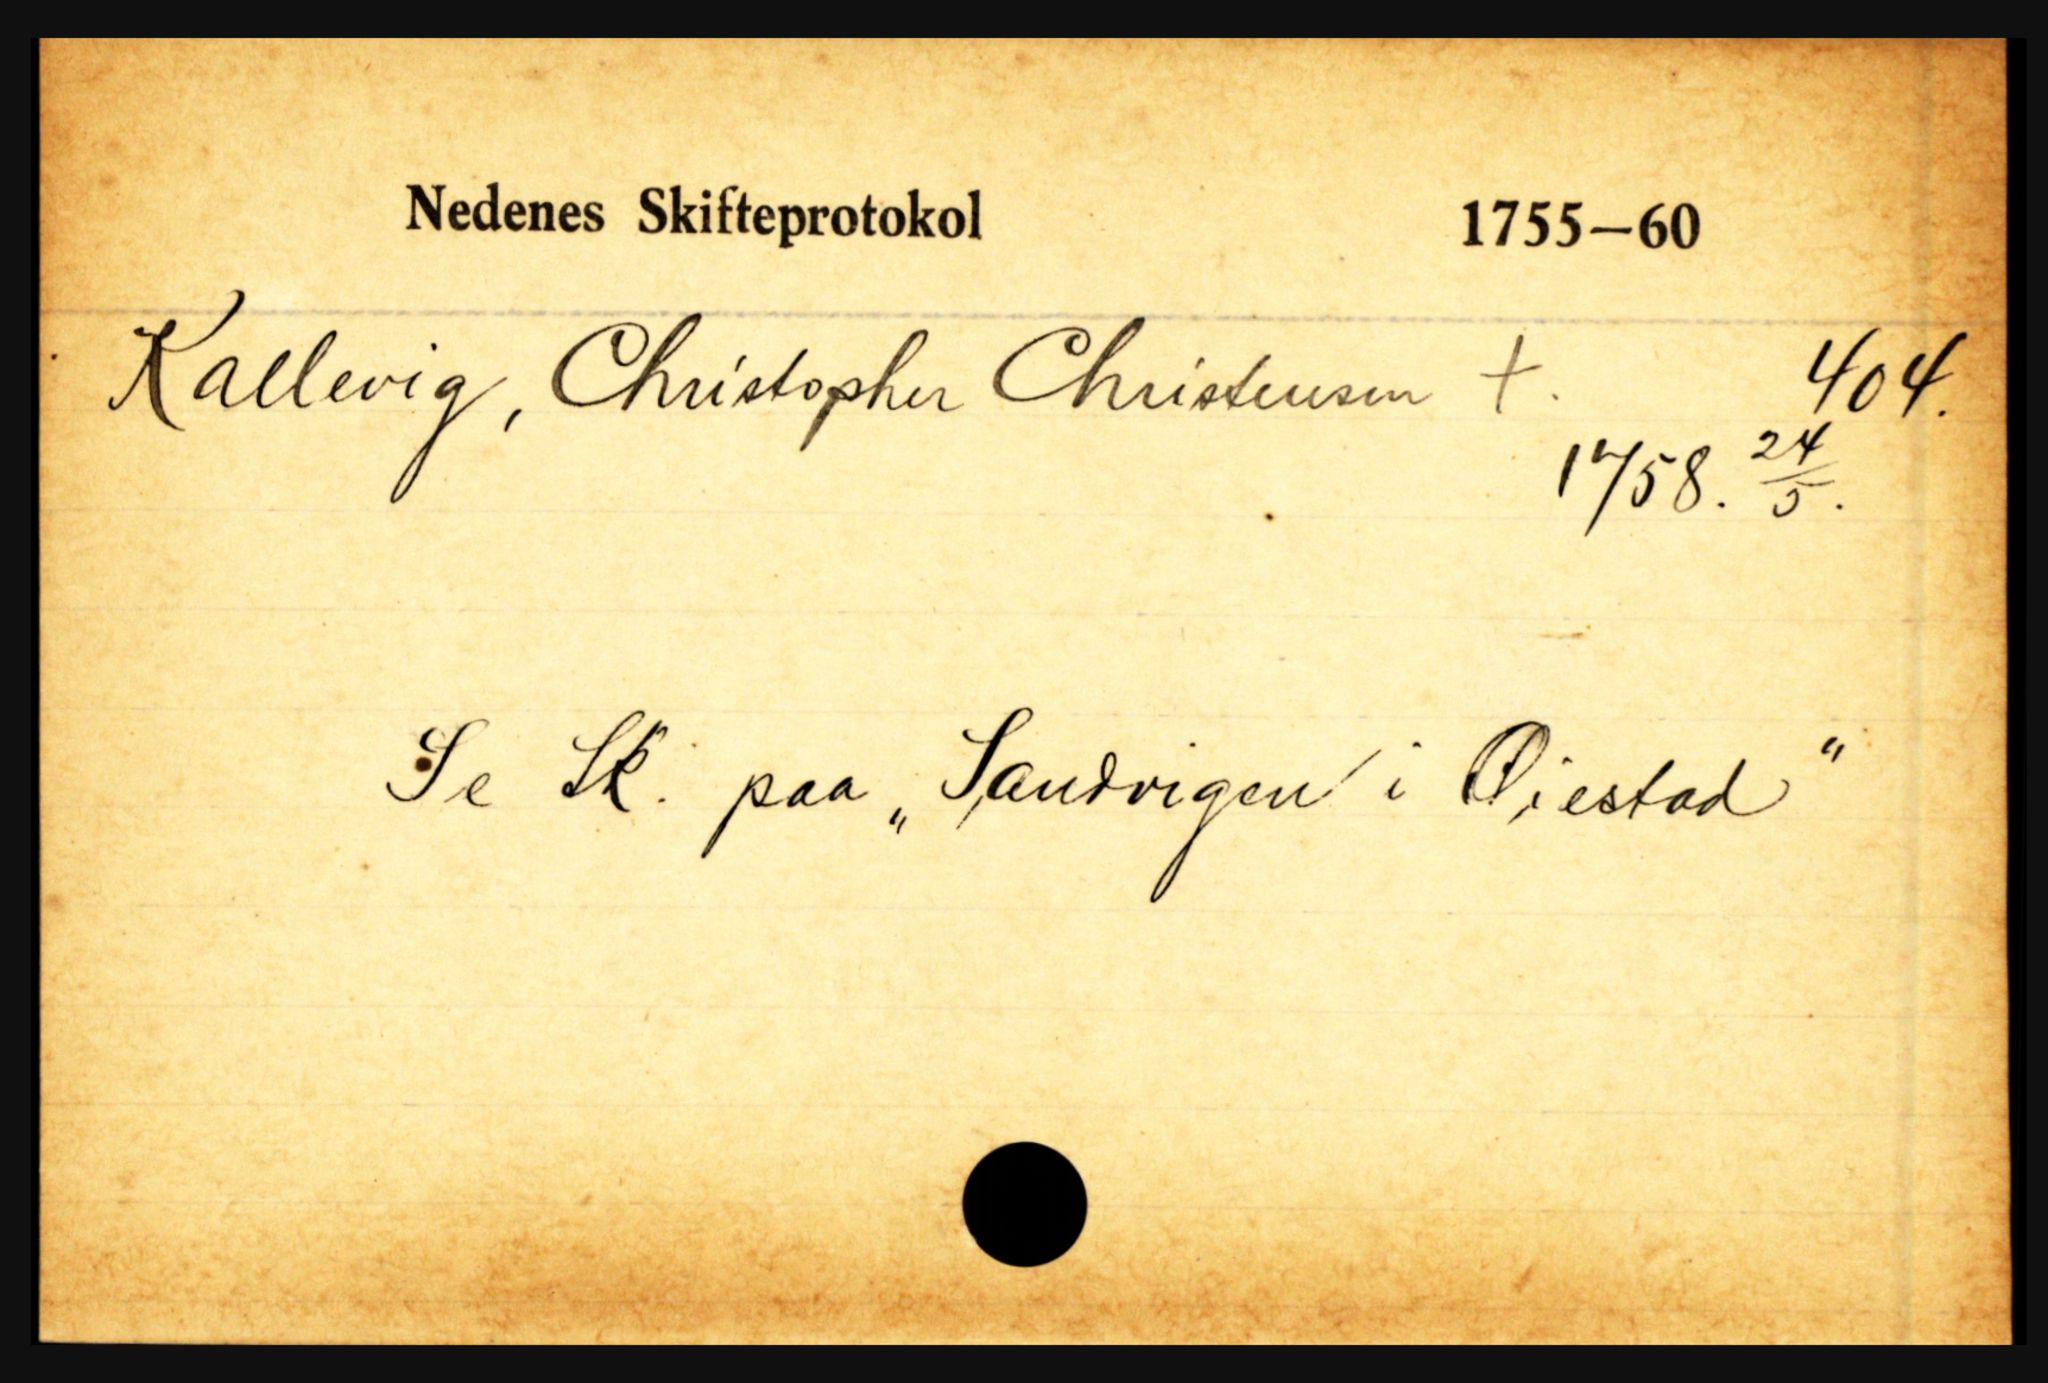 Nedenes Skifteprotokol 1755—60
Kallevig, Christopher Christensen †. 404.
1758. 24/5.
Se Sk. paa „Sandvigen i Øiestad“